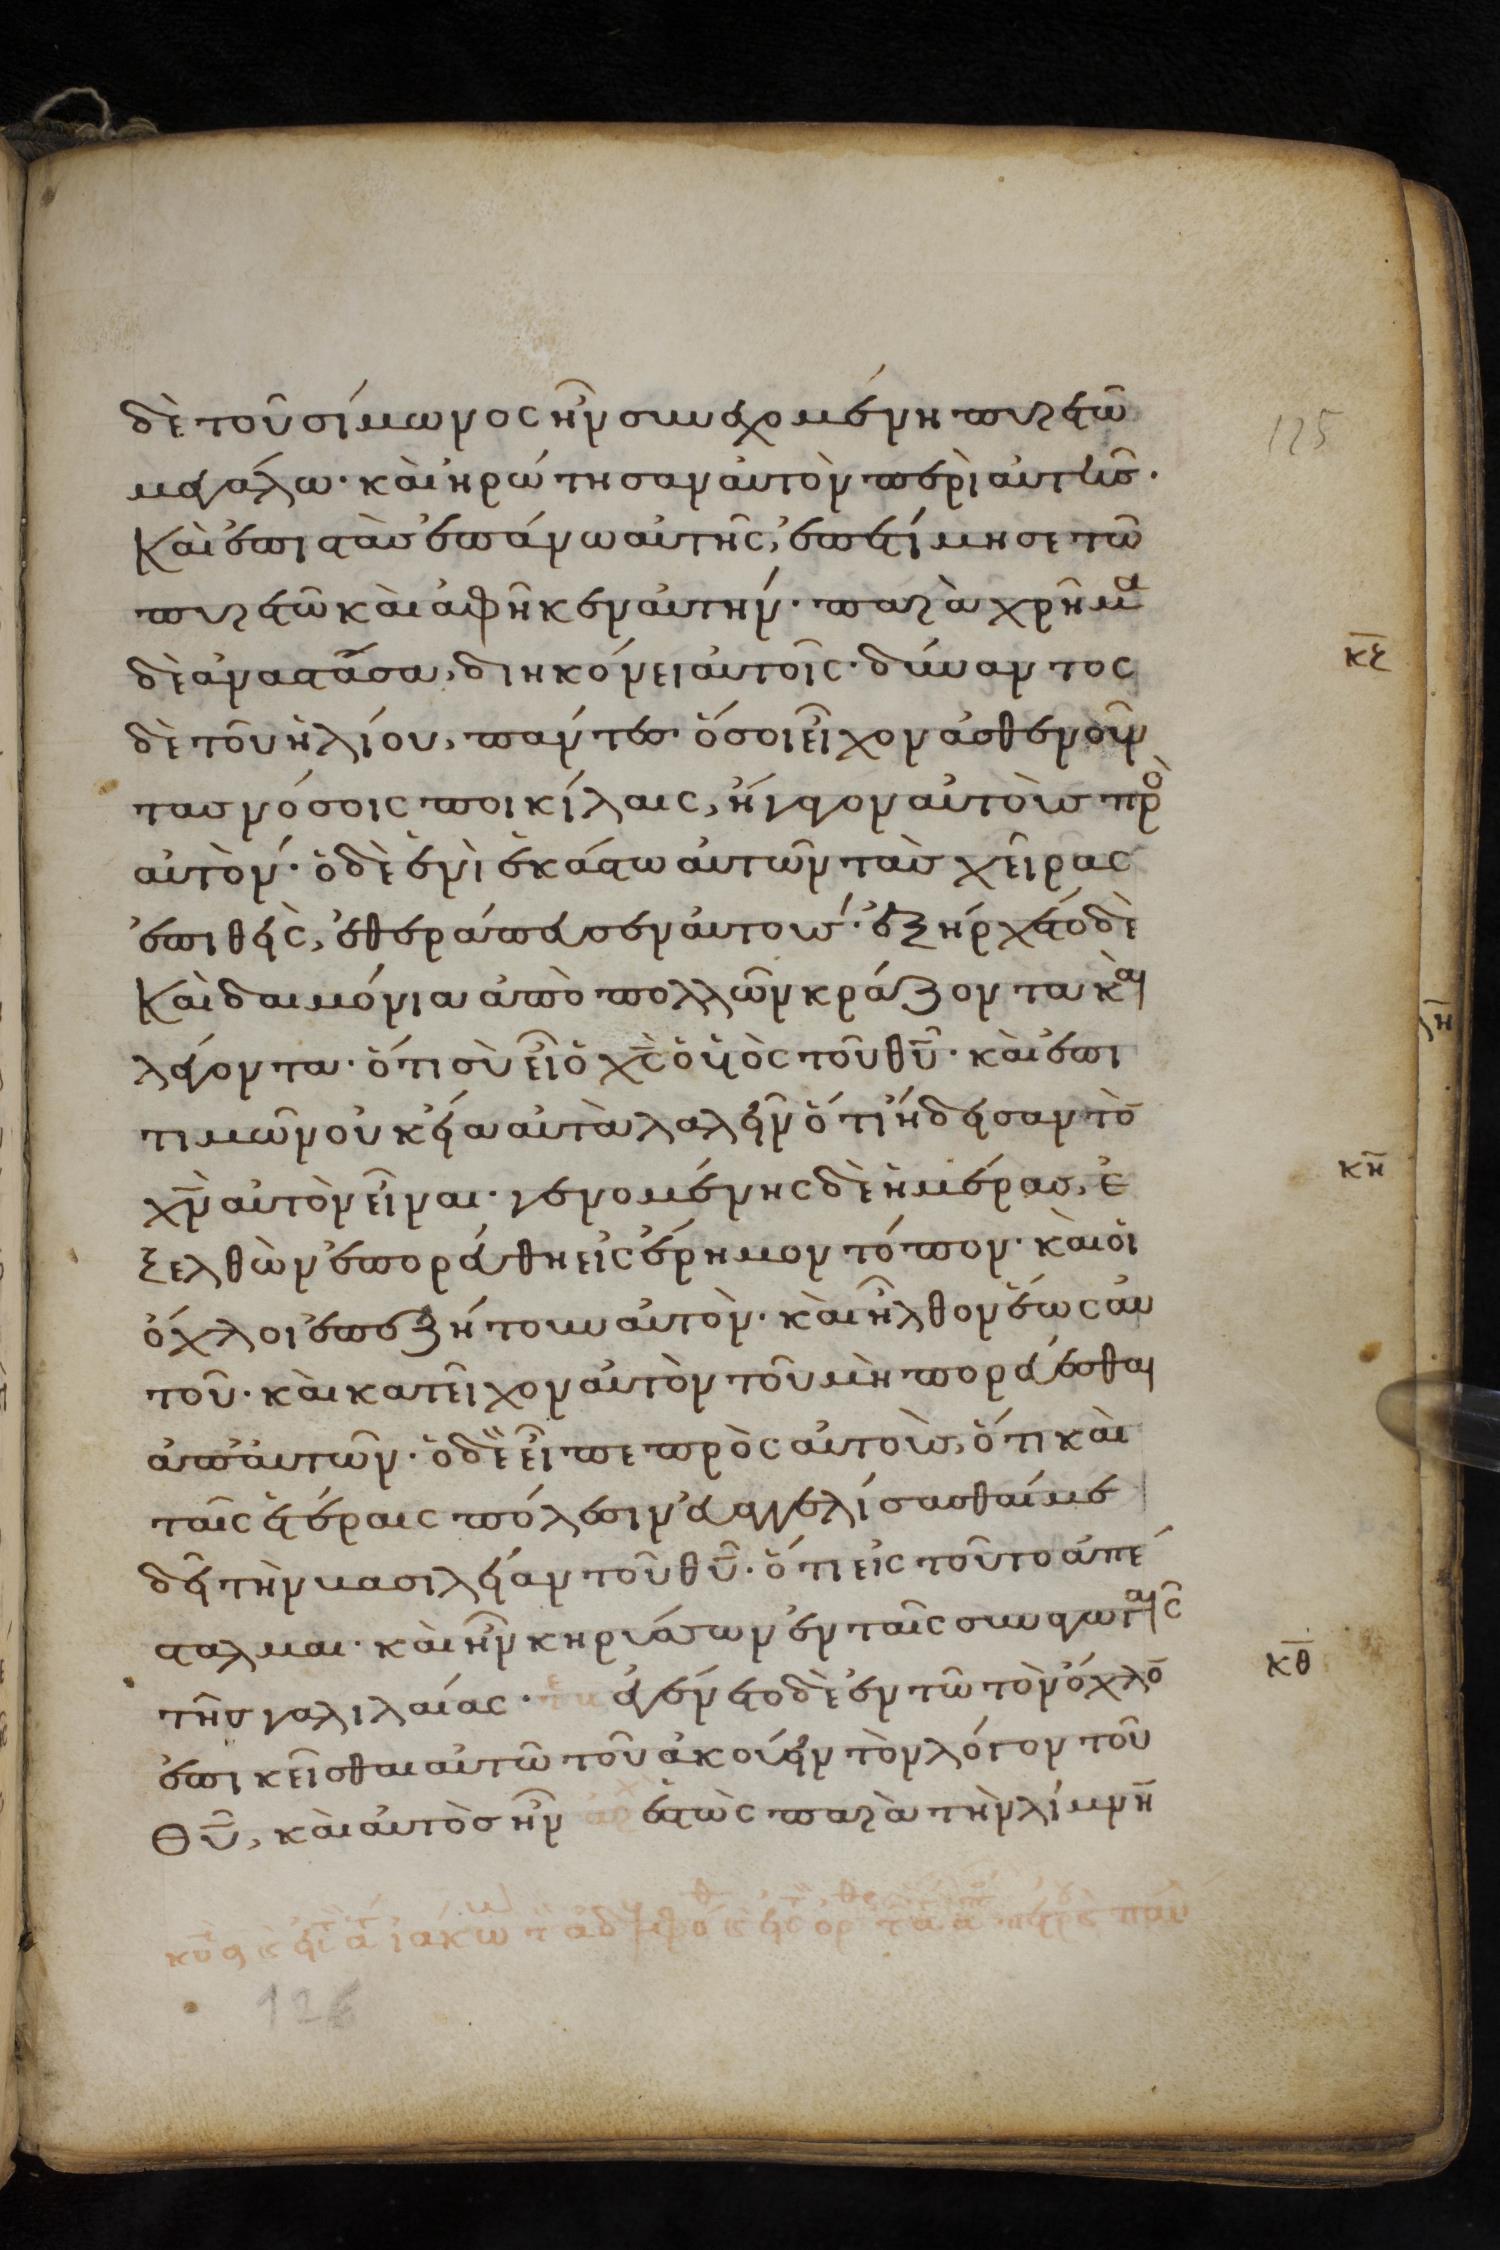 125
δὲ τοῦ σίμωνος ἦν συνεχομένη πυρετῶ
μεγάλω· καὶ ἠρώτησαν αὐτὸν περὶ αὐτῆς·
Καὶ ἐπιστὰς ἐπάνω αὐτῆς, ἐπετίμησε τῶ
πυρετῶ καὶ ἀφῆκεν αὐτήν· παραχρῆμα
δὲ ἀναστᾶσα, διηκόνει αὐτοῖς· δύναντος
κζ
δὲ τοῦ ἡλίου, πάντες ὅσοι εἶχον ἀσθενοῦν
τας νόσοις ποικίλαις, ἤγαγον αὐτοὺς πρὸ
αὐτόν· ὁ δὲ ἑνὶ ἑκάστω αὐτῶν τὰς χεῖρας
ἐπιθεὶς, ἐθεράπευσεν αὐτούς· ἐξήρχετο δὲ
Καὶ δαιμόνια ἀπὸ πολλῶν κράζοντα καὶ
λέγοντα· ὅτι σὺ εἶ ὁ χ̅ς̅ ὁ υἱὸς τοῦ θ̅υ̅· καὶ ἐπι
τιμῶν οὐκ εἴα αὐτὰ λαλεῖν ὅτι ἤδεισαν τὸ
χ̅ν̅ αὐτὸν εἶναι· γενομένης δὲ ἡμέρας, ἐ
κη
ξελθὼν ἐπορεύθη εἰς ἔρημον τόπον· καὶ οἱ
ὄχλοι ἐπεζήτουν αὐτὸν· καὶ ἦλθον ἕως αὐ
τοῦ· καὶ κατεῖχον αὐτὸν τοῦ μὴ πορεύεσθαι
ἀπ᾽ αὐτῶν· ὁ δὲ εἶπε πρὸς αὐτοὺς, ὅτι καὶ
ταῖς ἑτέραις πόλεσιν εὐαγγελίσασθαί με
δεῖ τὴν βασιλείαν τοῦ θ̅υ̅· ὅτι εἰς τοῦτο ἀπέ
σταλμαι· καὶ ἦν κηρύσσων ἐν ταῖς συναγωγαῖς
τῆς γαλιλαίας· ἐγένετο δὲ ἐν τῶ τὸν ὄχλο
κθ
ἐπικεῖσθαι αὐτῶ τοῦ ἀκούειν τὸν λόγον τοῦ
Θ̅υ̅, καὶ αὐτὸς ἦν ἑστὼς παρὰ τὴν λίμνη
126